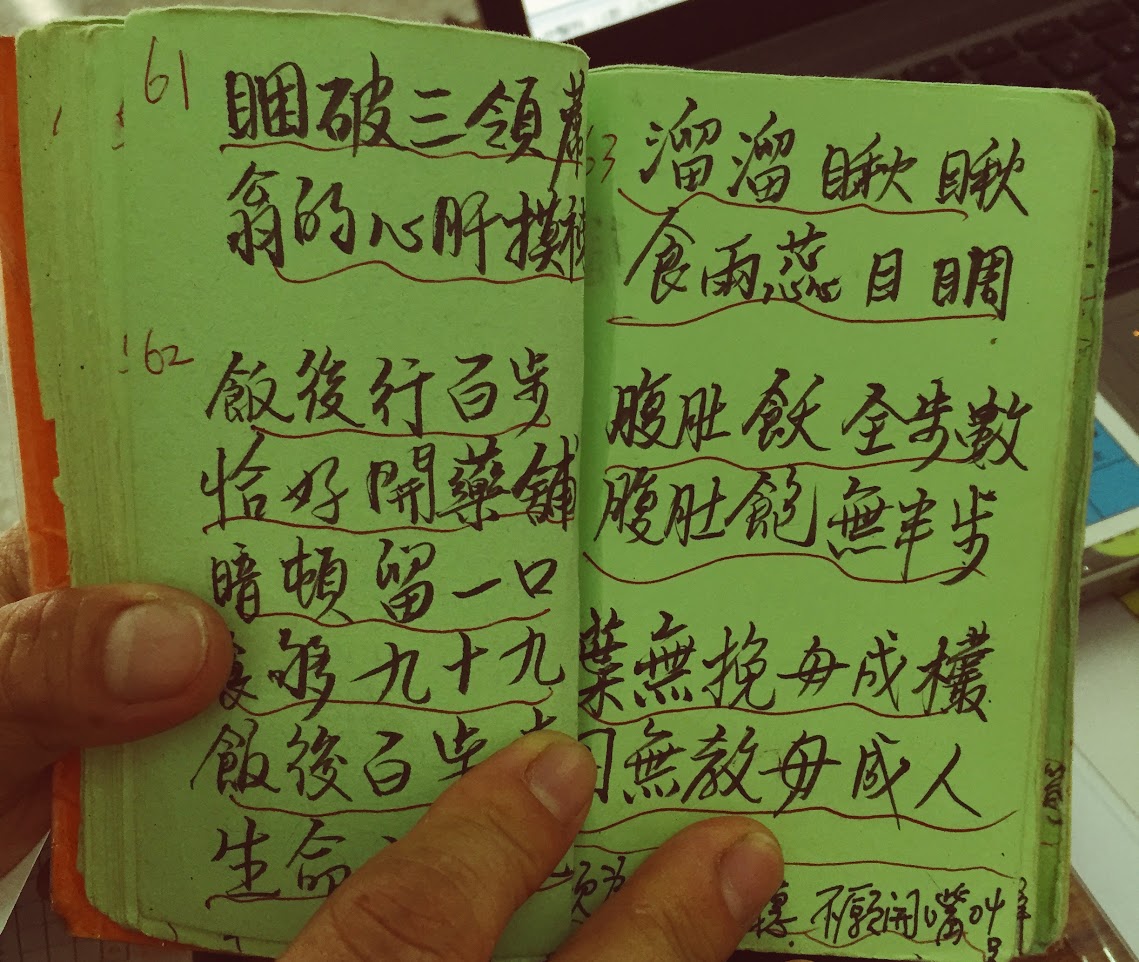 61
睏破三領蓆
翁的心肝摸
162
飯後行百步
恰好開藥舖
暗頓留一口
食够九十九
飯後百步
生命
63
溜溜瞅瞅
食兩蕊目睭
腹肚飫全步數
腹肚飽無半步
葉無挽毋成欉
無教毋成人
不願開嘴叫